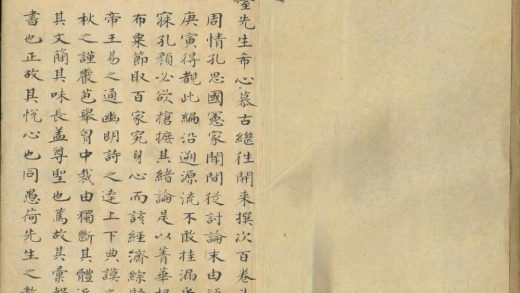 先生希心慕古繼往開来撰次百卷
周情孔思國憲家閑間從討論末由
庚寅得覩此編沿遡源流不敢挂漏
寐孔顏必欲摭其緒論是以菁華
布粟節取百家究身心而該經濟綜
帝王易之通幽明詩之達上下典謨之
秋之謹嚴苞舉胷中裁由獨斷其體
其文簡其味長盖尊聖也篤故其彙
書也正故其恱心也同愚荷先生之